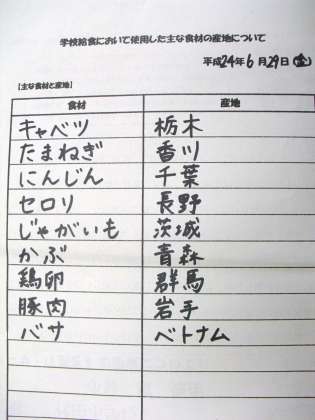 学校給食において使用した主な食材の産地について
平成24年6月29日(金)
【主な食材と産地】
食材 産地
キャベツ 栃木
たまねぎ 香川
にんじん 千葉
セロリ 長野
じゃがいも 茨城
かぶ 青森
鶏卵 群馬
豚肉 岩手
バサ ベトナム